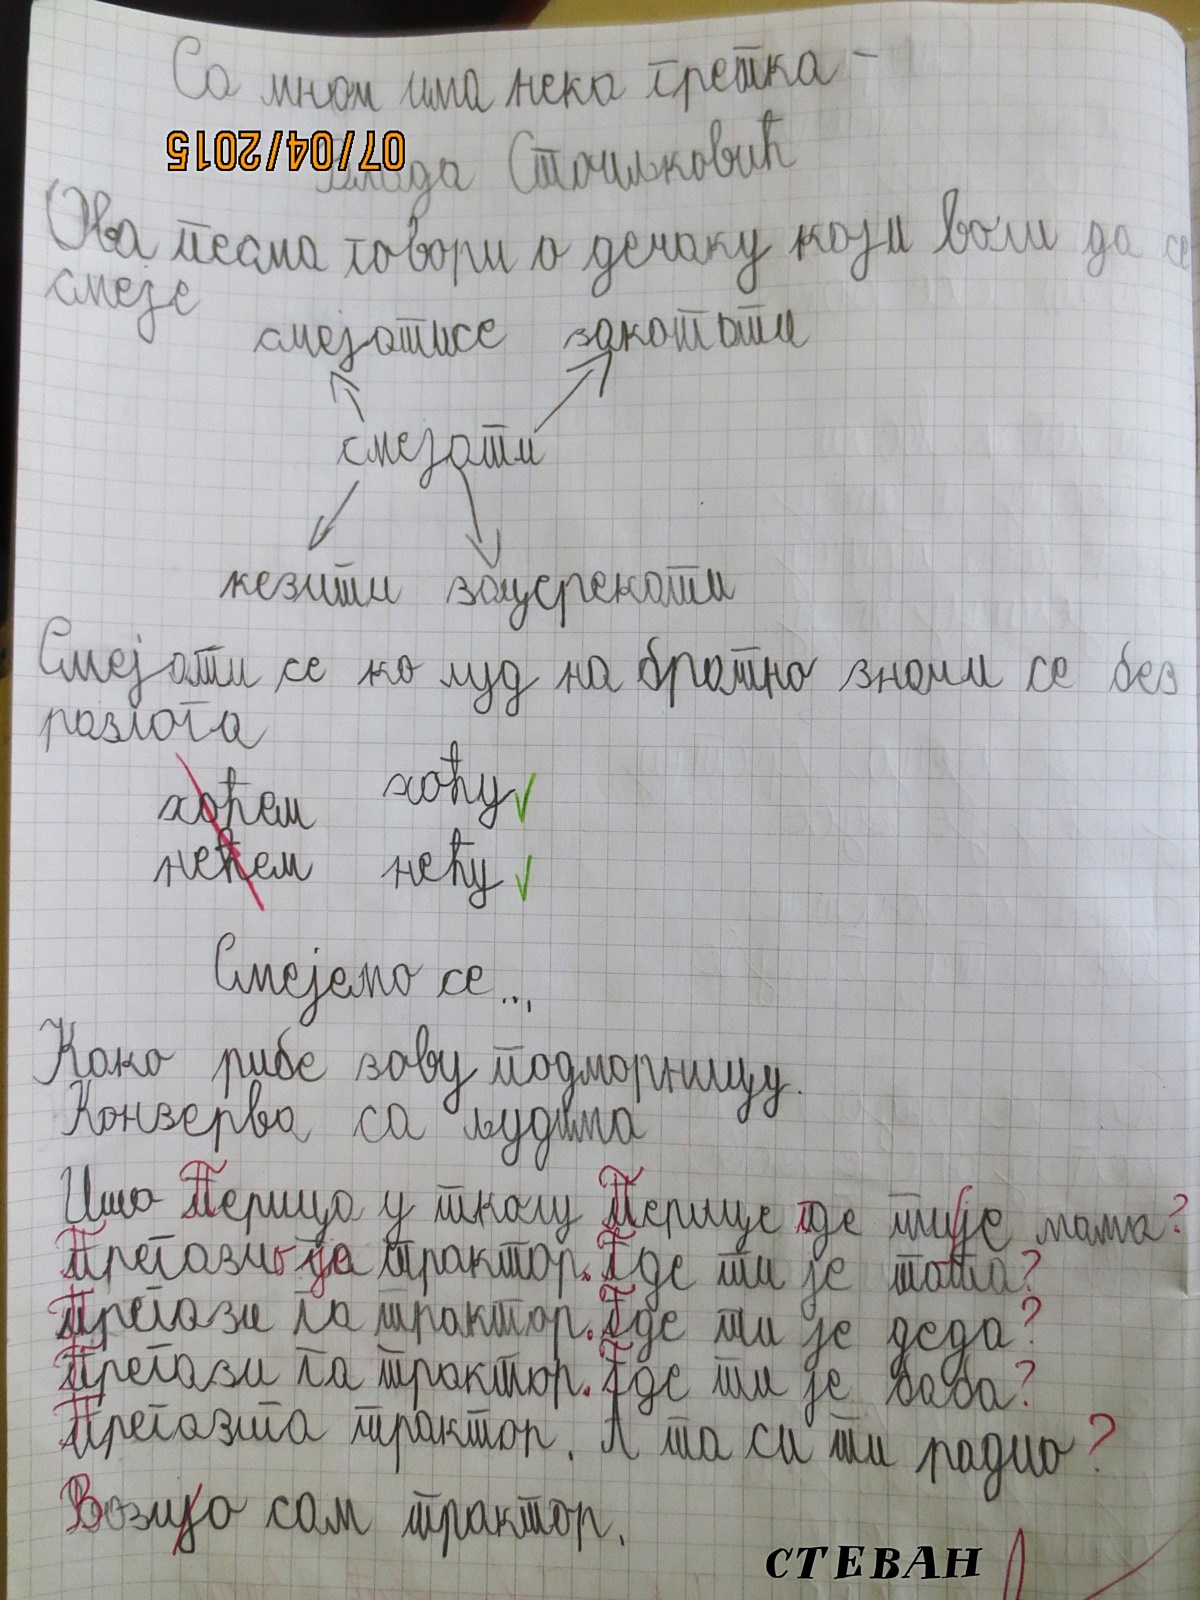 Са мном има нека грешка -
07/04/2015
Влада Стоиљковић
Ова песма говори о дечаку који воли да се
смеје
смејатисе закотати
смејати
кезити зацерекати
Смејати се ко луд на брашно значи се без
разлога
хоћем хоћу ✓
нећем нећу ✓
Смејемо се...
Како рибе зову подморницу.
Конзерва са људима
Ишо Перица у школу Перице где ти је мама?
Прегазио је трактор. Где ти је тата?
Прегази га трактор. Где ти је деда?
Прегази га трактор. Где ти је баба?
Прегазига трактор. А та си ти радио?
Возијо сам трактор.
СТЕВАН